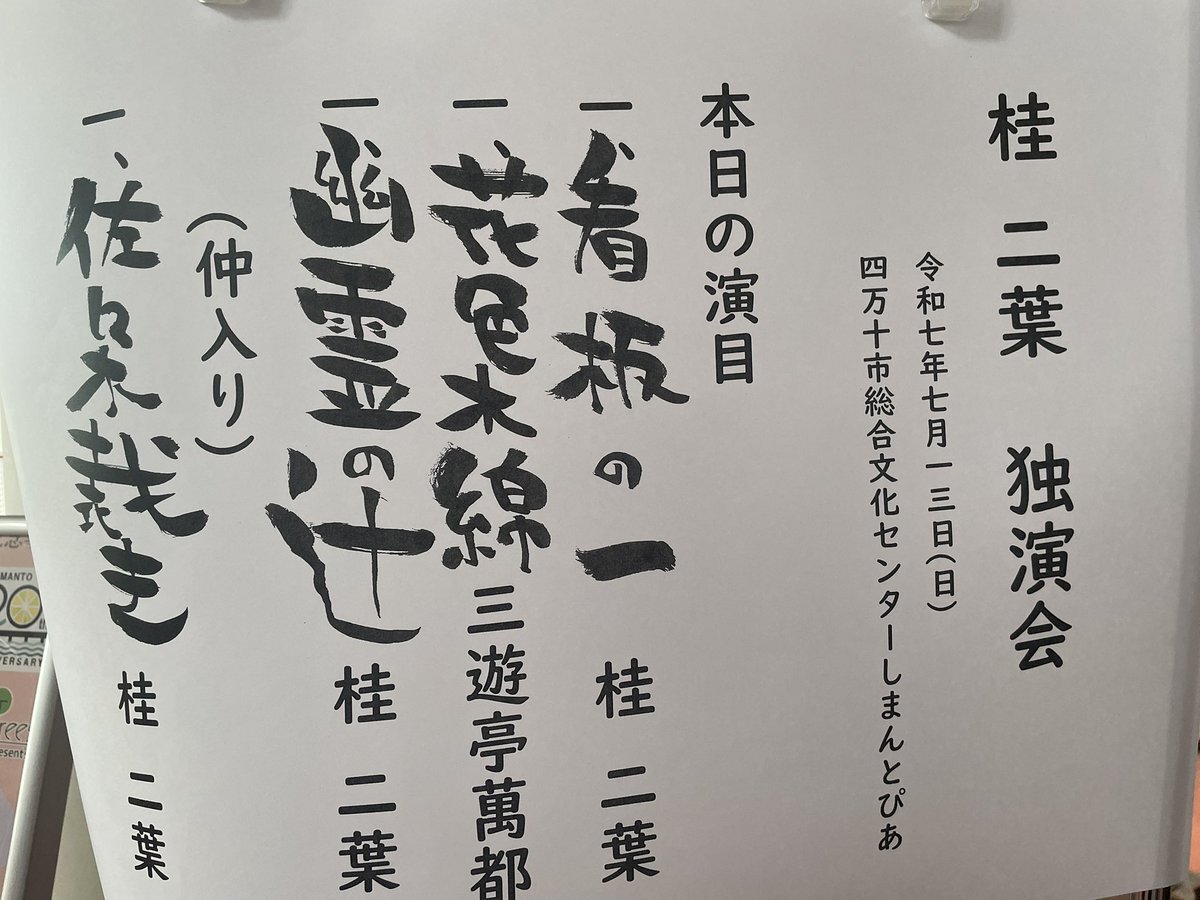 桂 二葉 独演会
令和七年七月一三日(日)
四万十市総合文化センターしまんとぴあ
本日の演目
一、看板の一 桂 二葉
一、花色木綿 三遊亭萬都
一、幽霊の辻 桂 二葉
(仲入り)
一、佐々木裁き 桂 二葉
MANTO
20th
VERSARY